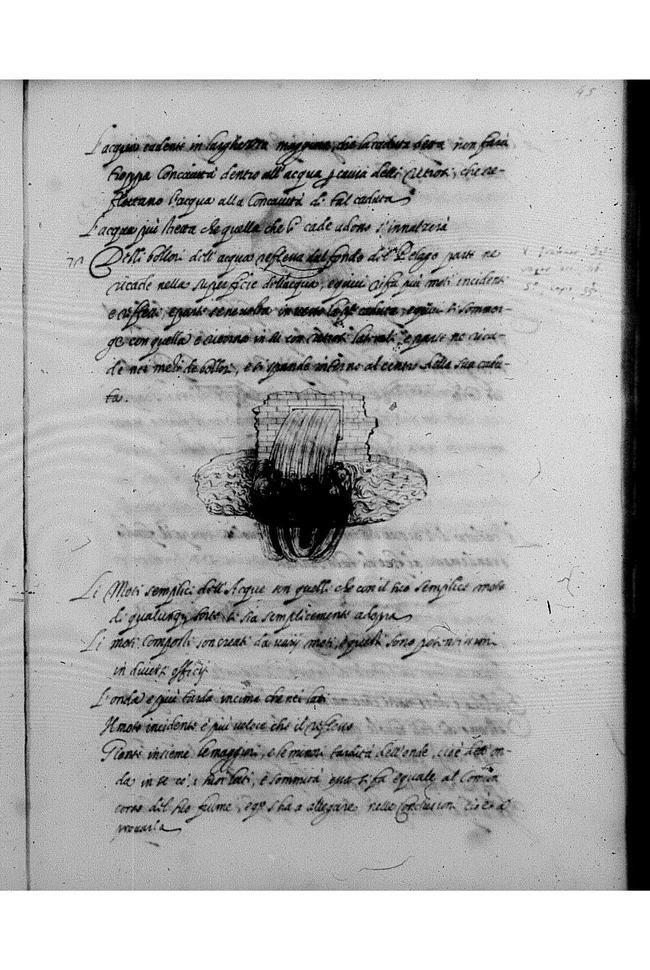 45
L'acqua cadente in larghezza maggiore, che la caduta sua non farà
troppa Concavità dentro all'acqua p causa delli Retrosi, che re-
flettano l'acqua alla Concavità di tal caduta
L'acqua più stretta che quella che li cade adosso s'innalzerà
70 Delli bollori dell'acqua reflessa dal fondo del Pelago parte ne
ricade nella superficie dell'acqua, e quivi rifa più moti incidenti
e riflessi, e parte se ne volta in verso la caduta, e quivi si sommer-
ge con quella e ritorna in su con retrosi laterali e parte ne rica-
de nel mezzo de bollori, e si spande intorno al centro della sua cadu-
ta.
Li Moti semplici dell'Acque son quelli che con il suo semplice moto
di qualunq sorte si sia semplicemente adopra
Li moti Composti son creati da varij moti, e questi sono
in diversi officij
L'onda e più tarda in cima che nei lati
Il moto incidente è più veloce che il reflesso
Gionte insieme le maggiori, e le minori tardità dell'onde, cioè dell'on-
da in se co' i suoi lati, è sommità sua si fa equale al Comun
corso del suo fiume, e s'ha a allegare nelle Conclusioni ciò è a
provarla